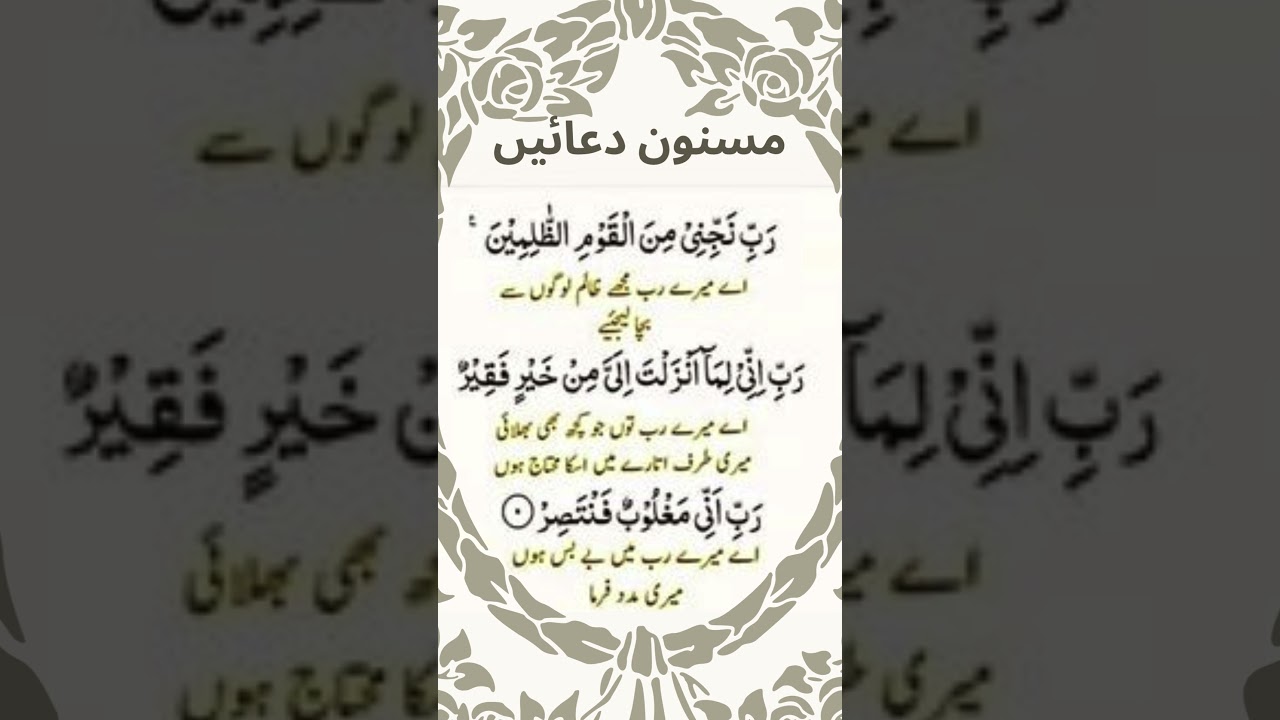 مسنون دعائیں
رَبِّ نَجِّنِیْ مِنَ الْقَوْمِ الظّٰلِمِیْنَ
اے میرے رب مجھے ظالم لوگوں سے
بچا لیجئیے
رَبِّ اِنِّیْ لِمَاۤ اَنْزَلْتَ اِلَیَّ مِنْ خَیْرٍ فَقِیْرٌ
اے میرے رب توں جو کچھ بھی بھلائی
میری طرف اتارے میں اسکا محتاج ہوں
رَبِّ اَنِّیْ مَغْلُوْبٌ فَنْتَصِرْ
اے میرے رب میں بے بس ہوں
میری مدد فرما